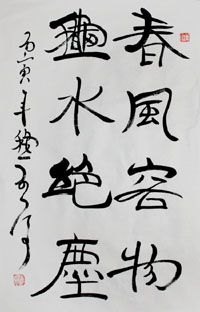 春風容物
龝水絶塵
丙寅年